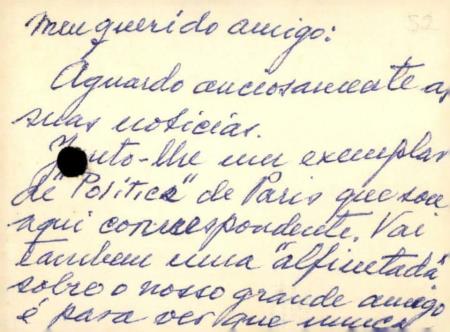 52
Meu querido amigo:
Aguardo anciosamente as
suas noticias.
Junto-lhe um exemplar
de "Politica" de Paris que sou
aqui correspondente. Vai
tambem uma "alfinetada"
sobre o nosso grande amigo
é para ver que nunca